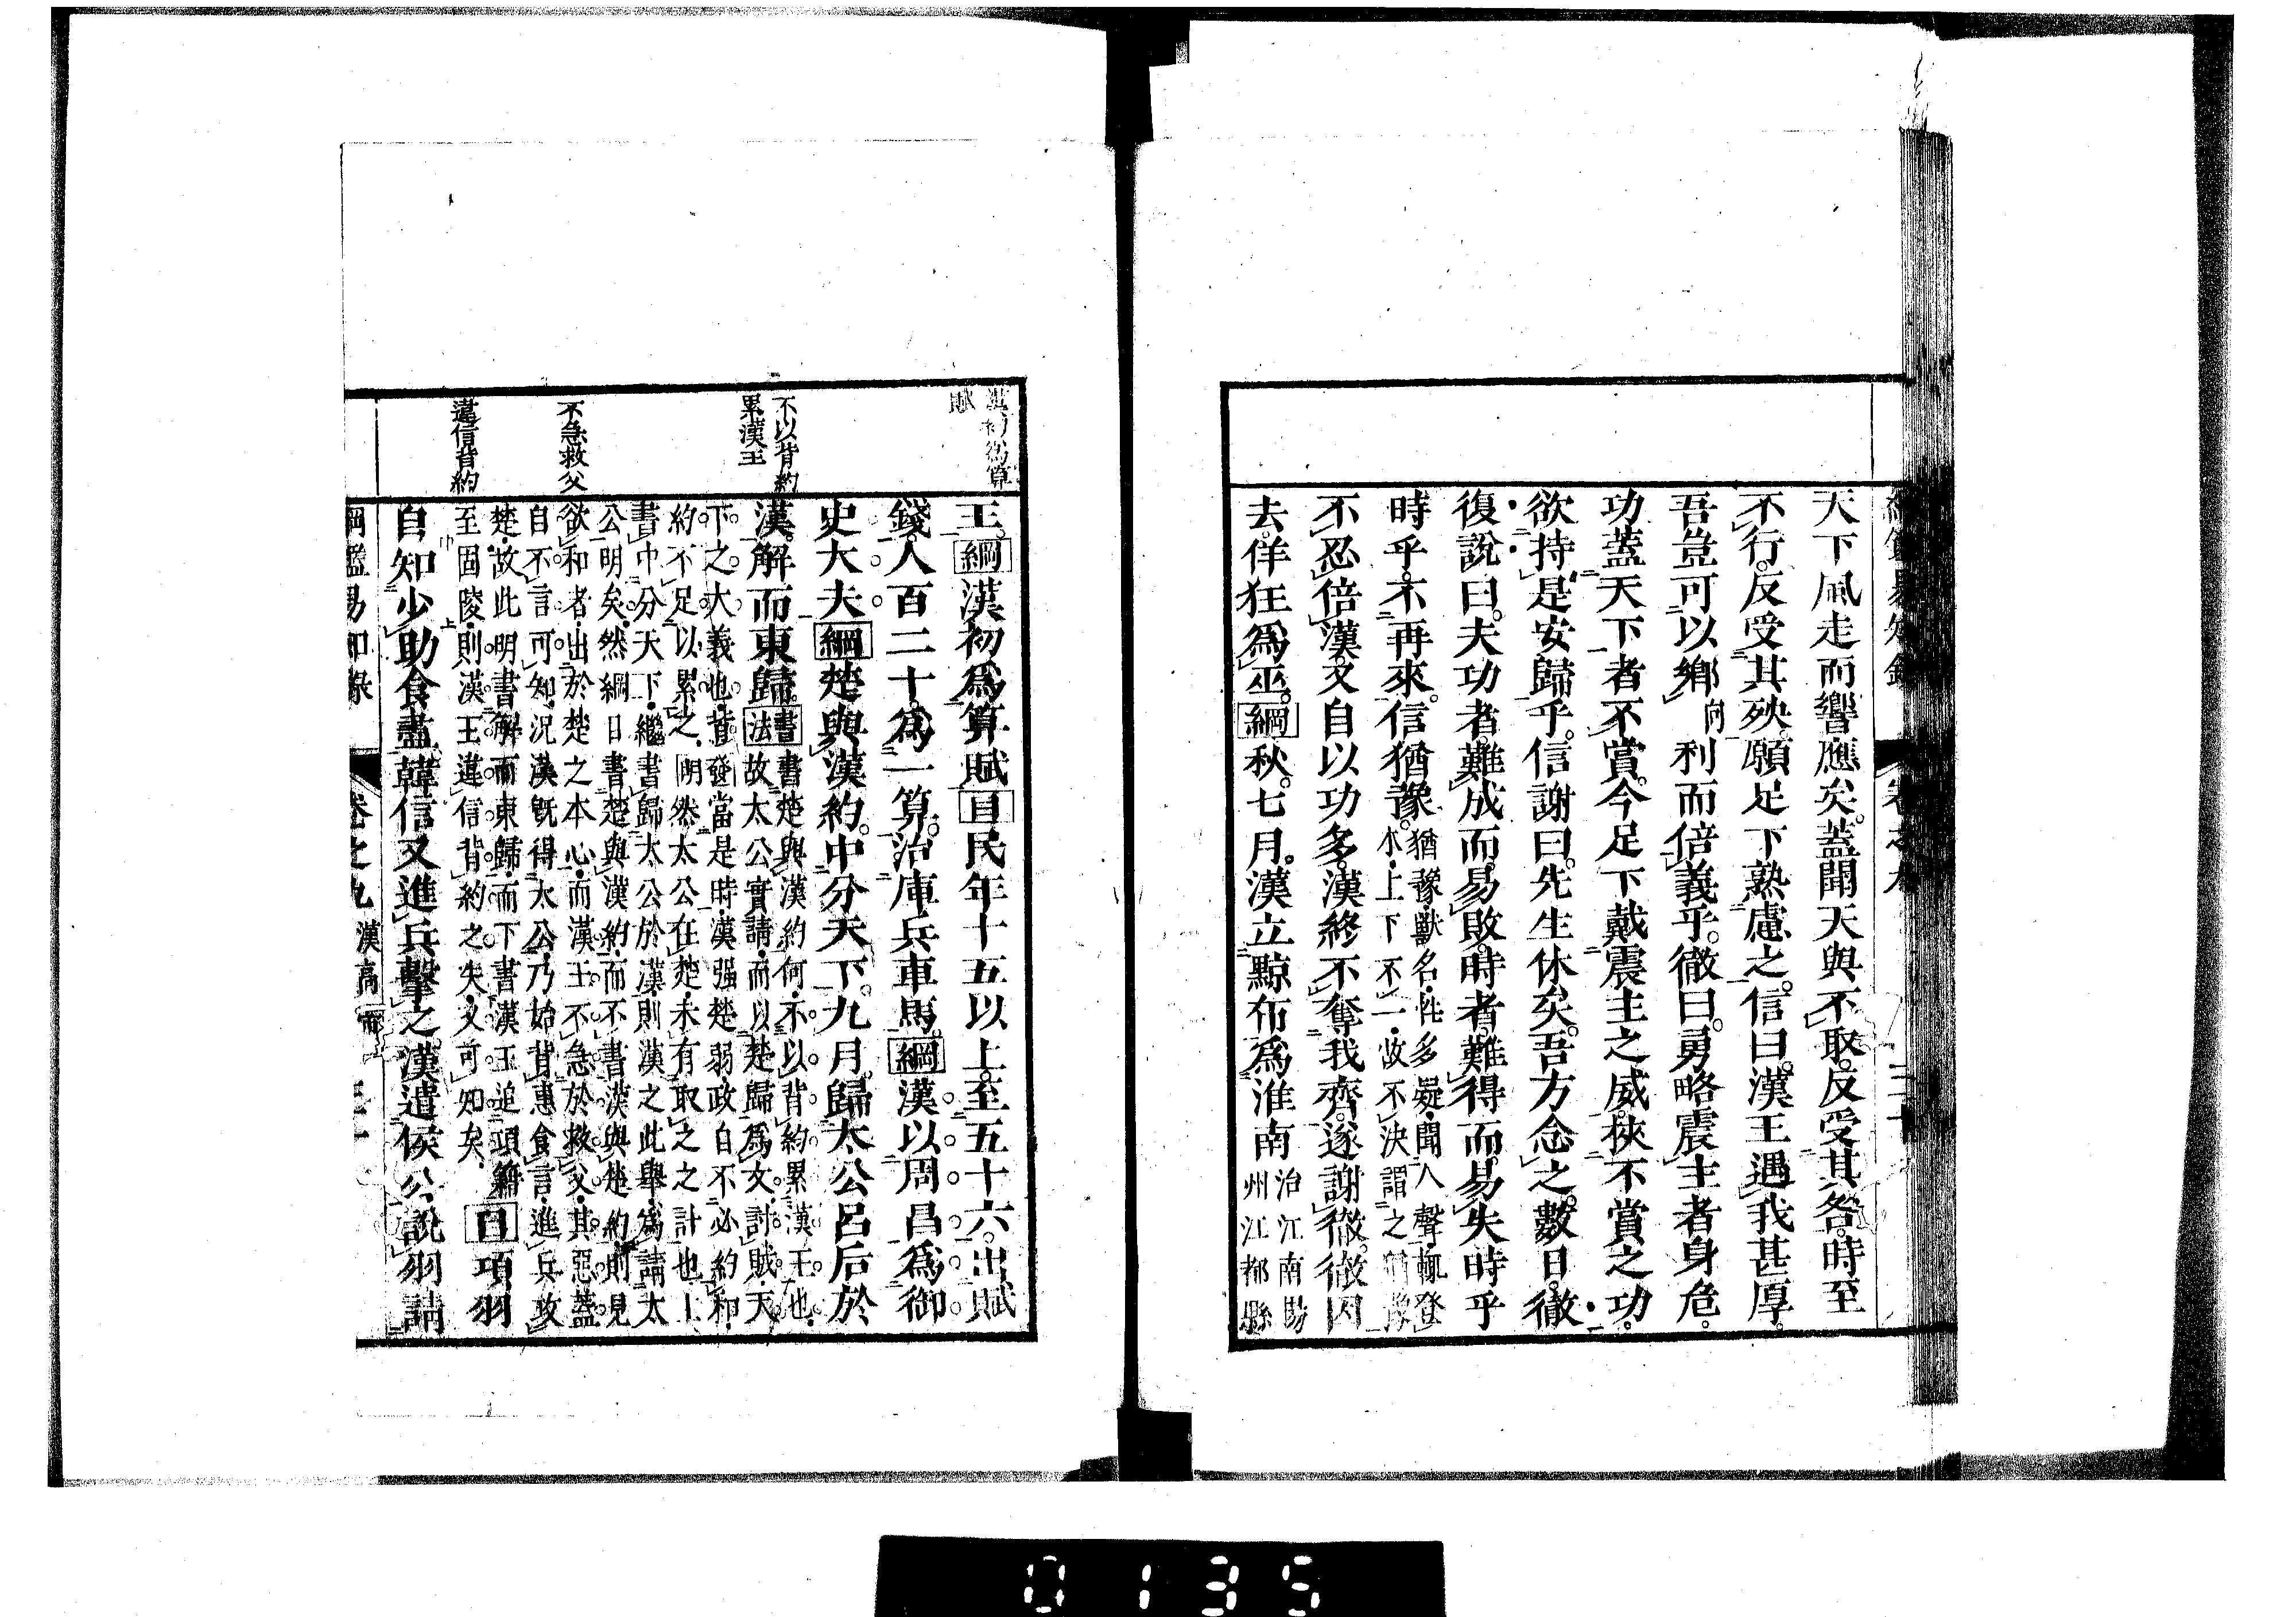 天下風走而響應矣。蓋聞天與不取。反受其咎。時至
不行。反受其殃。願足下熟慮之。信曰。漢王遇我甚厚。
吾豈可以鄉向利而倍義乎。徹曰。勇略震主者身危。
功蓋天下者不賞。今足下戴震主之威。挾不賞之功。
欲持是安歸乎。信謝曰。先生休矣。吾方念之。數日。徹
復說曰。夫功者難成而易敗。時者難得而易失。時乎
時乎。不再來。信猶豫。猶豫獸名性多疑聞人聲輒登
木上下不一故不決謂之猶豫
不忍倍漢。又自以功多。漢終不奪我齊。遂謝徹。徹因
去。佯狂為巫。綱秋。七月。漢立黥布為淮南治江南揚
州江都縣
王。綱漢初為算賦目民年十五以上至五十六。出賦
錢。人百二十。為一算。治庫兵車馬。綱漢以周昌為御
史大夫。綱楚與漢約。中分天下。九月。歸太公呂后於
漢。解而東歸。書法書楚與漢約何不以背約累漢王也
故太公實請而以楚歸為文討賊天
下之大義也背
約不足以累之發明
當是時漢强楚弱政自不必約和
然太公在楚未有取之之計也上
書中分天下繼書歸太公於漢則漢之此舉為請太
公明矣然綱目書楚與漢約而不書漢與楚約則見
欲和者出於楚之本心而漢王不急於救父其惡蓋
自不言可知況漢既得太公乃始背惠食言進兵攻
楚故此明書解而東歸而下書漢王追項籍
至固陵則漢王違信背約之失又可知矣
目項羽
自知少助食盡。韓信又進兵擊之。漢遣侯公說羽請
不以背約
累漢王
不急救父
違信背約
綱鑑易知錄
卷之九
漢高
0135